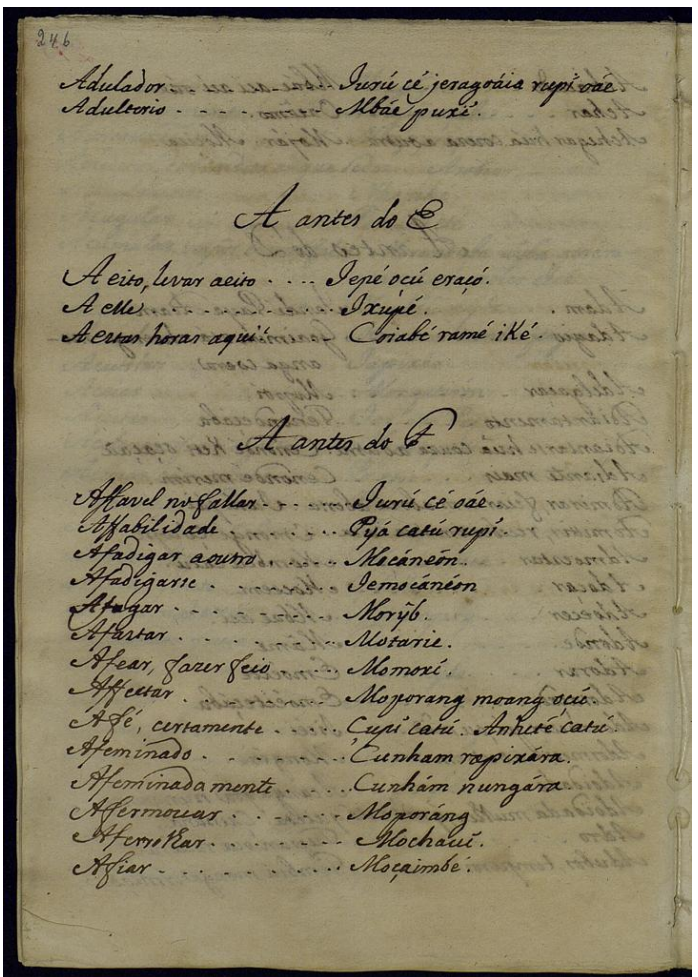 246
Adulador . . . . Jurú cé jeragoáia rupí oáe
Adulterio - - - - - Mbáe puxí.
A antes do E
A eito, levar aeito . . . . Jepé ocú eraçó.
A elle . . . . . . . . . Ixupé.
A estas horas aqui Coiabé ramé iKé.
A antes do F
Affavel no fallar . . . . Jurú cé oáe.
Affabilidade . . . . Pyá catú rupí.
Afadigar aoutro . . . . Mocáneón.
Afadigarse . . . . Jemocánéon
Afagar . . . . . Morÿb.
Afastar . . . . . Motarie.
Afear, fazer feio . . . . Momoxí.
Affectar . . . . . Moporang moang ocú.
Afé, certamente . . . . Cupí catú. Anheté catú
Afeminado . . . . . Cunham ræpixára.
Afeminadamente . . . . Cunhám nungára
Afermouzar . . . . . Moporáng
AferroKar . . . . . Mochauí.
Afiar . . . . . . Moçaimbé.